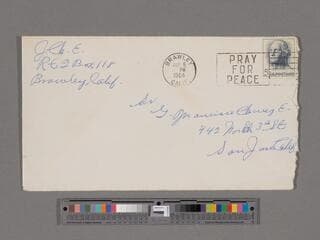 J. E.
Rt 2 Box 118
Brawley, Calif.
BRAWLEY
PM
1964
CALIF.
PRAY
FOR
PEACE
Sr.
G. Mauricio E.
442 North 3rd St
San Jose Calif.